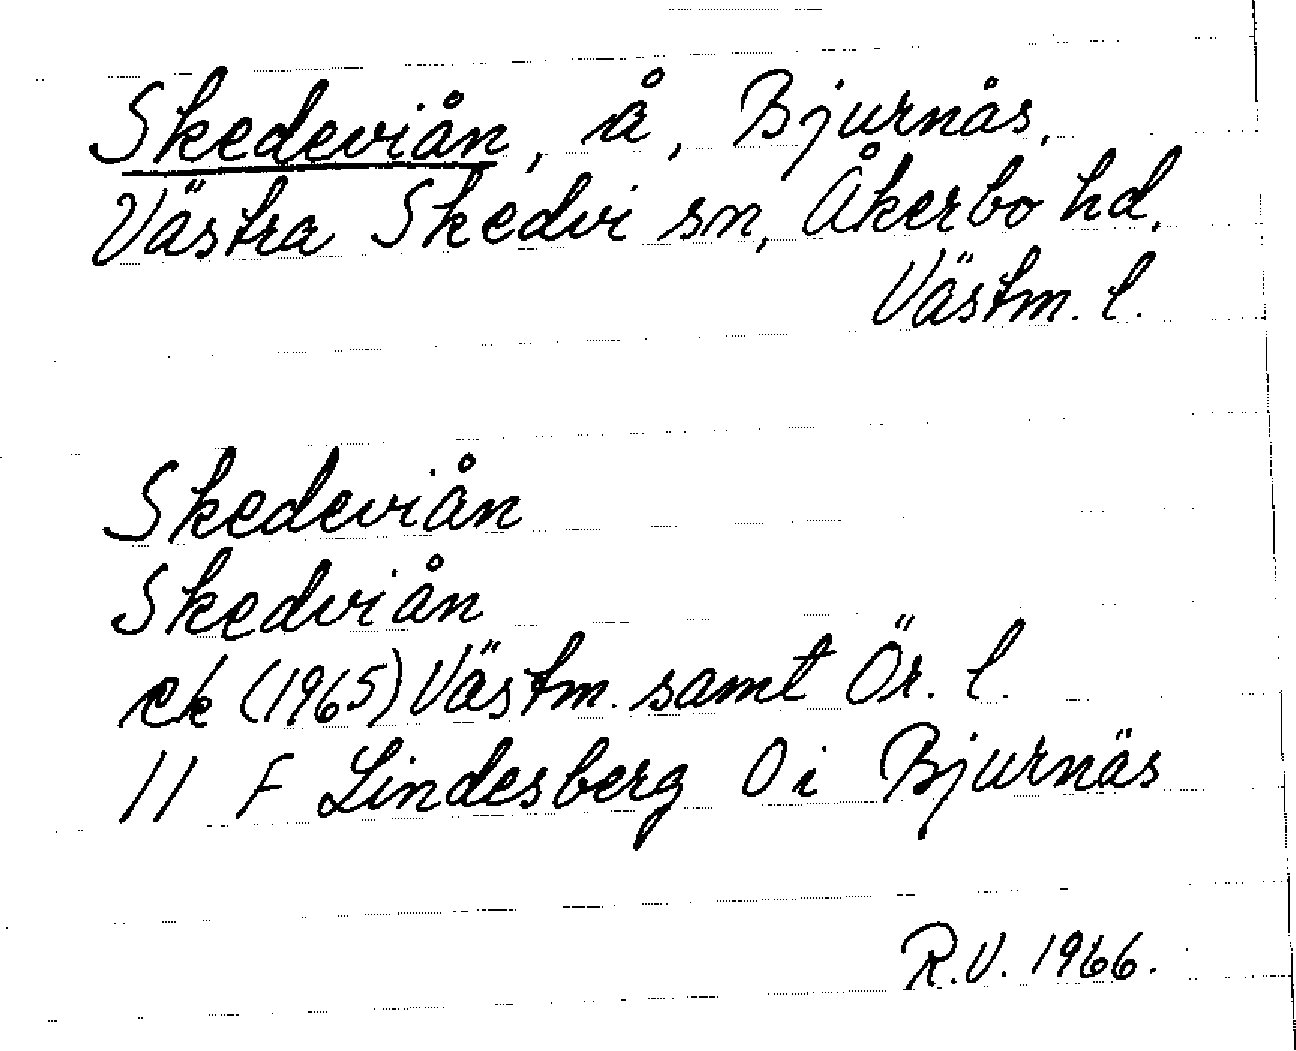 Skedeviån, å, Bjurnäs,
Västra Skedvi sn, Åkerbo hd,
Västm. l.
Skedeviån
Skedviån
ek (1965) Västm. samt Ör. l.
11 F Lindesberg 0 i Bjurnäs
R.V. 1966.